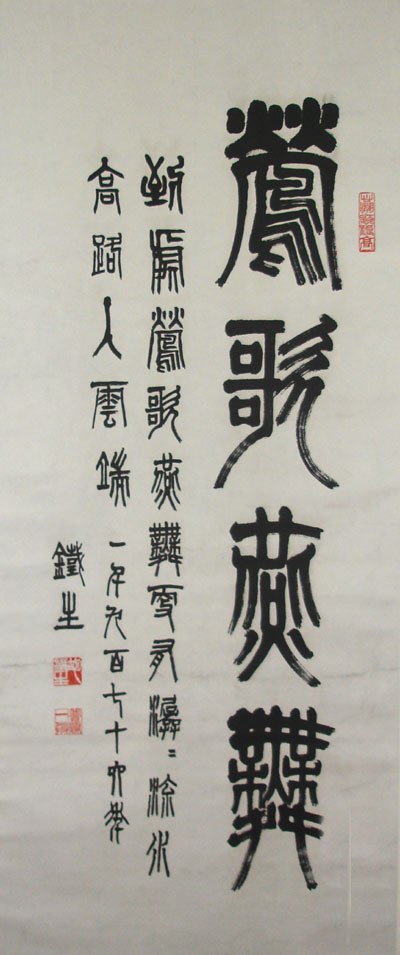 鶯歌燕舞
到處鶯歌燕舞更有潺〻流水
高路入雲端 一千九百七十六年
鐵生